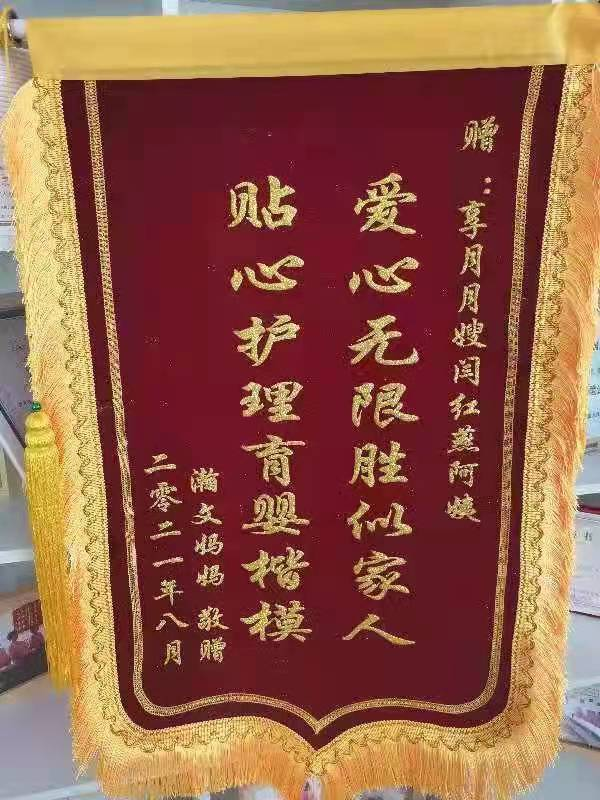 赠：享月月嫂闫红燕阿姨
爱心无限胜似家人
贴心护理育婴楷模
瀚文妈妈 敬赠
二零二一年八月